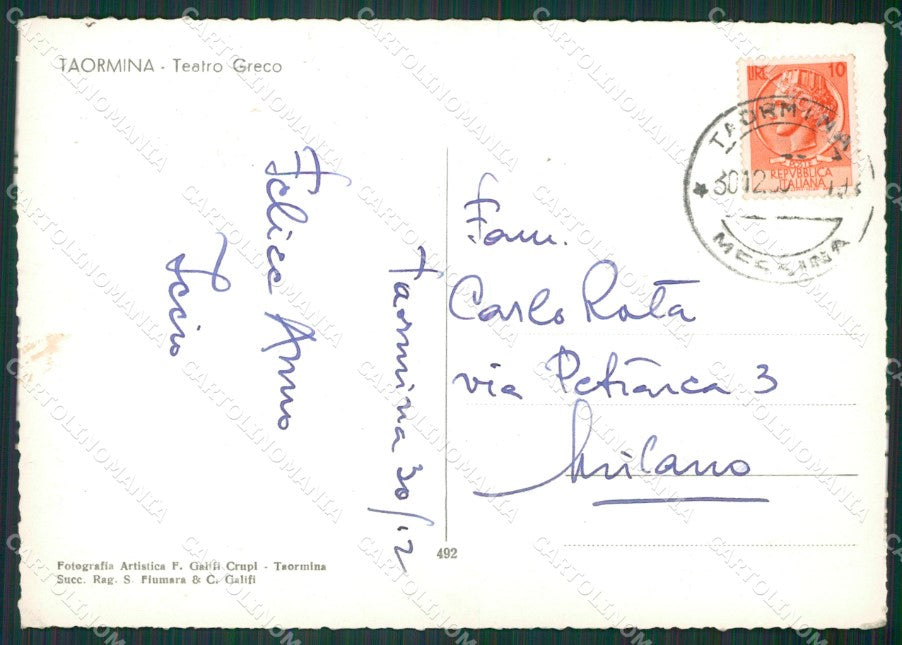 TAORMINA - Teatro Greco
LIRE 10
REPVBBLICA
ITALIANA
TAORMINA
30.12.
MESSINA
Taormina 30/12
Felice Anno
Fam.
Carlo Rota
via Petrarca 3
Milano
492
Fotografia Artistica F. Galifi Crupi - Taormina
Succ. Rag. S. Fiumara & C. Galifi
CARTOLINOMANIA